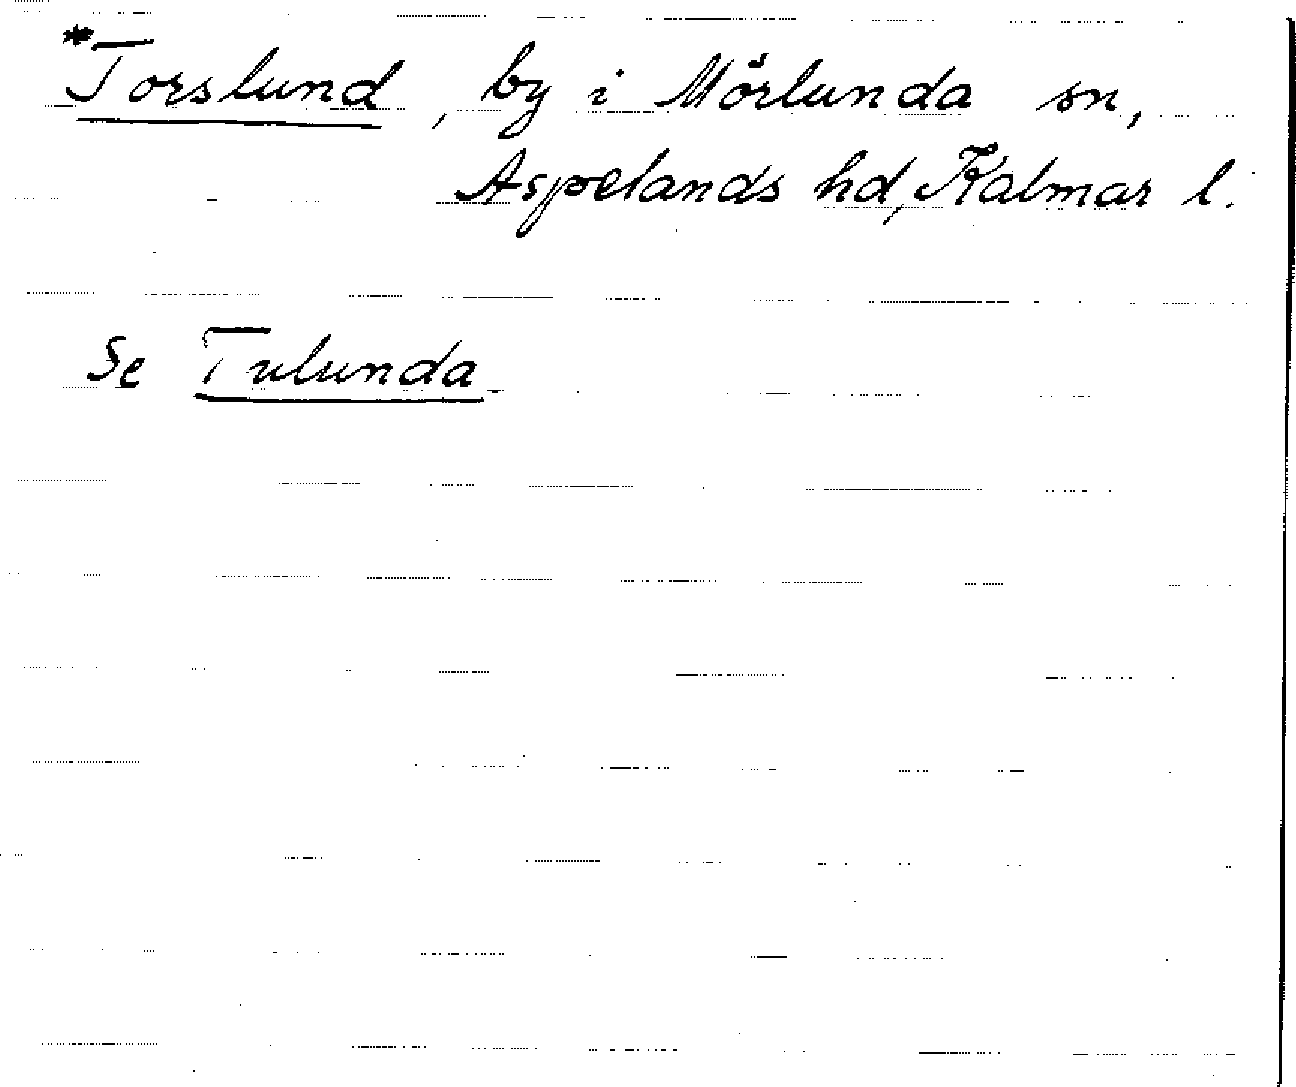 *Torslund, by i Mörlunda sn,
Aspelands hd, Kalmar l.
Se Tulunda